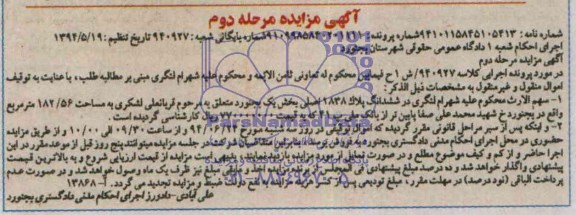 آگهی مزایده مرحله دوم
شماره نامه : ۹۴۱۰۱۱۵۸۴۵۱۰۵۴۱۳ شماره پرونده : شماره بایگانی شعبه : ۹۴۰۹۲۷ تاریخ تنظیم : ۱۳۹۴/۵/۱۹
اجرای احکام شعبه ۱ دادگاه عمومی حقوقی شهرستان بجنورد
آگهی مزایده مرحله دوم
در مورد پرونده اجرایی کلاسه ۹۴۰۹۲۷/ ش ۱ ح فیمابین محکوم له تعاونی ثامن الائمه و محکوم علیه شهرام لنگری مبنی بر مطالبه طلب ، با عنایت به توقیف
اموال منقول و غیرمنقول به مشخصات ذیل الذکر :
۱- سهم الارث محکوم علیه شهرام لنگری در ششدانگ پلاک ۲۸۳۸ اصلی بخش یک بجنورد متعلق به مرحوم قربانعلی لشکری به مساحت ۱۸۲/۵۶ مترمربع
واقع در بجنورد خ شهید محمد علی صفا پایین تر از بانک کارشناسی گردیده است .
۲- و اینکه پس از سیر مراحل قانونی مقرر گردیده که اموال توقیفی در روز شنبه مورخ ۹۴/۰۶/۲۴ و از ساعت ۰۹/۳۰ الی ۱۰/۰۰ و از طریق مزایده
حضوری در محل اجرای احکام مدنی دادگستری بجنورد به فروش برسد. بنابراین متقاضیان شرکت در جلسه مزایده میتوانند پنج روز قبل از موعد مقرر در این
اجرا حاضر و از کم و کیف موضوع مطلع و در صورت تمایل از مورد مزایده بازدید نمایند. پایه قیمت مزایده از قیمت ارزیابی شروع و به بالاترین قیمت
پیشنهادی واگذار خواهد شد و ده درصد مبلغ پیشنهادی فی المجلس از برنده مزایده اخذ و مابقی مبلغ نیز ظرف یک ماه وصول خواهد شد و در صورت عدم
پرداخت الباقی (نود درصد) در مهلت مقرر ، مبلغ تودیعی پس از کسر هزینه مزایده به نفع دولت ضبط و مزایده تجدید می گردد. آ- ۱۳۸۶۸
علی آبادی-دادورز اجرای احکام مدنی دادگستری بجنورد